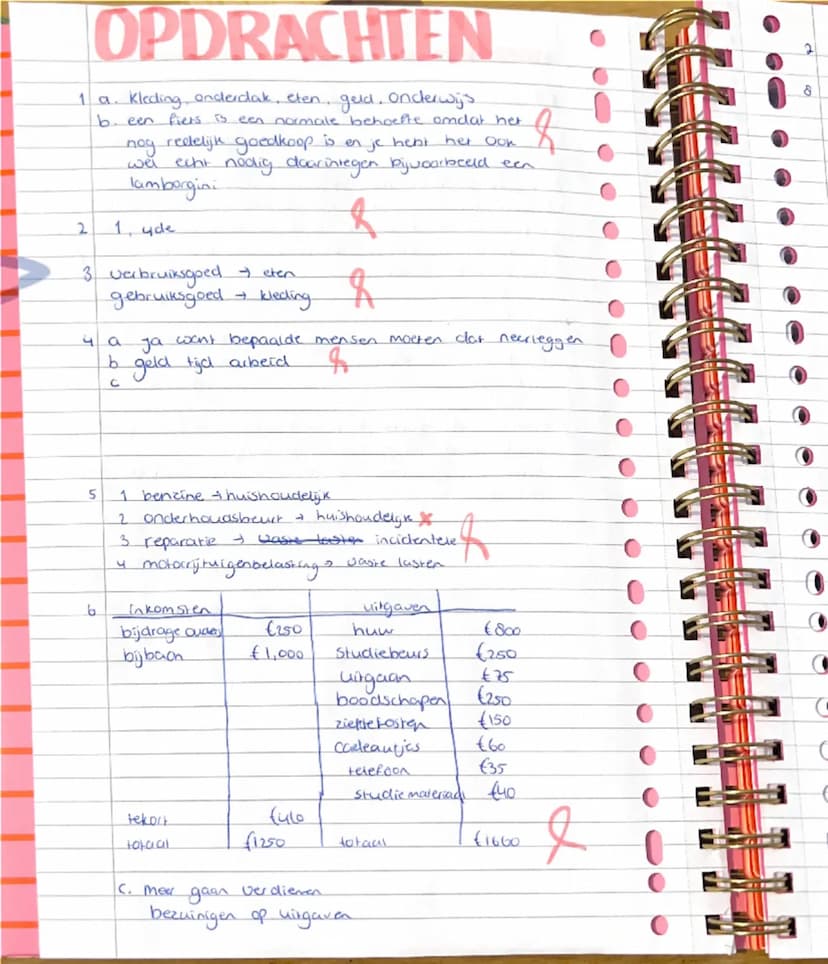 OPDRACHTEN
1 a. Kleding, onderdak, eten, geld, onderwijs
b. een fiets is een normale behoefte omdat het
nog redelijk goedkoop is en je hebt het ook
wel echt nodig daarintegen bijvoorbeeld een
lamborgini
2 1, 4de
3 verbruiksgoed → eten
gebruiksgoed → kleding
4 a ja want bepaalde mensen moeten dat neerleggen
b geld tijd arbeid
c
5 1 benzine → huishoudelijk
2 onderhoudsbeurt → huishoudelijk x
3 reparatie → vaste lasten incidentele
4 motorrijtuigenbelasting → vaste lasten
6 inkomsten uitgaven
bijdrage ouders €250 huur €800
bijbaan €1,000 studiebeurs €250
uitgaan €75
boodschapen €250
ziektekosten €150
cadeautjes €60
telefoon €35
studiemateriaal €40
tekort €410
totaal €1250 totaal €1660
c. meer gaan verdienen
bezuinigen op uitgaven
2
8